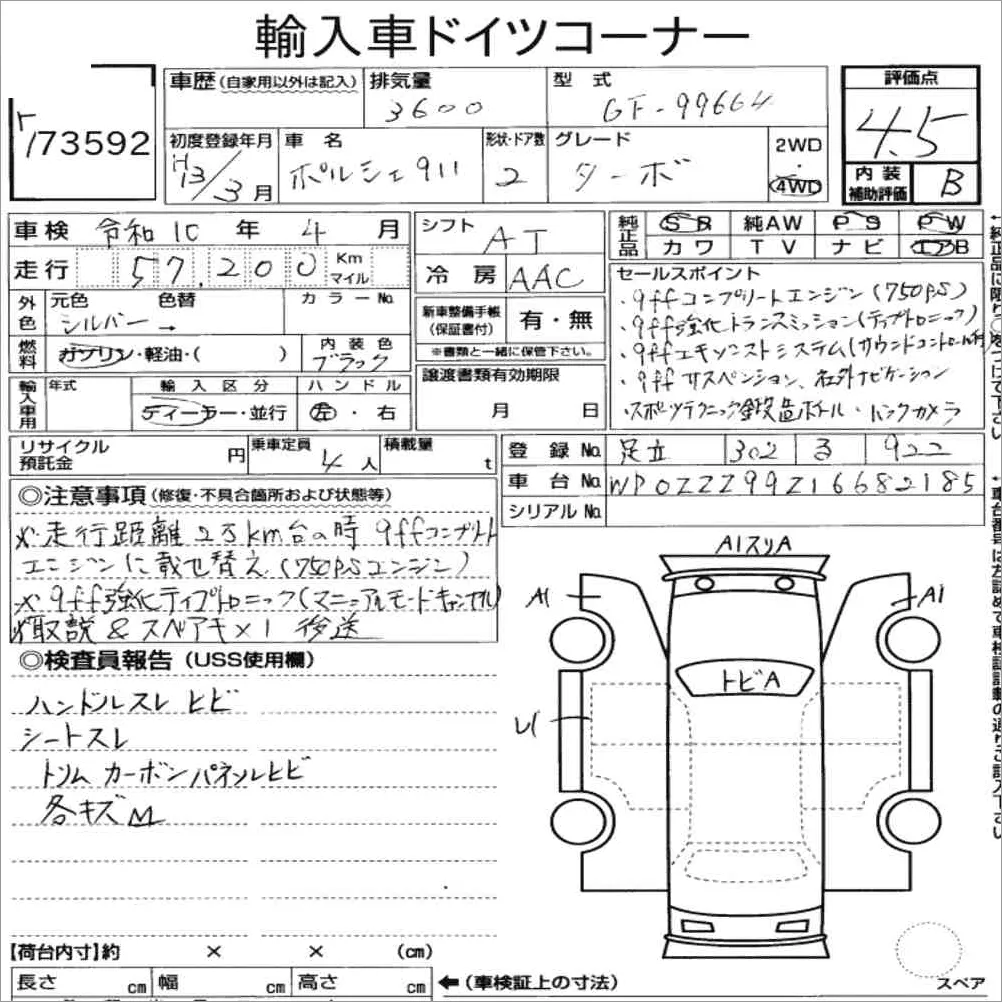 輸入車ドイツコーナー
73592
車歴(自家用以外は記入)
排気量
3600
型式
GF-99664
評価点
4.5
初度登録年月
H13/3月
車名
ポルシェ911
形状・ドア数
2
グレード
ターボ
2WD
・
4WD
内装
補助評価
B
車検 令和10年4月
走行 57,200 Km
マイル
シフト
AT
冷房 AAC
純正品
SR 純AW PS PW
カワ TV ナビ エアB
外色
元色 色替 カラーNo.
シルバー →
燃料
ガソリン・軽油・( )
内装色
ブラック
新車整備手帳
(保証書付)
有・無
※書類と一緒に保管下さい。
セールスポイント
・9ffコンプリートエンジン(750PS)
・9ff強化トランスミッション(ティプトロニック)
・9ffエキゾーストシステム(サウンドコントロール付)
・9ffサスペンション、社外ナビゲーション
・スポーツテクニック鍛造ホイール・バックカメラ
輸入車用
年式
輸入区分
ディーラー・並行
ハンドル
左・右
譲渡書類有効期限
月 日
リサイクル
預託金
円
乗車定員
4人
積載量
t
登録No. 足立 302 る 922
車台No. WP0ZZZ99Z16682185
シリアルNo.
◎注意事項(修復・不具合箇所および状態等)
※走行距離23km台の時9ffコンプリート
エンジンに載せ替え(750PSエンジン)
※9ff強化ティプトロニック(マニュアルモードキャンセル)
※取説&スペアキ×1 後送
◎検査員報告(USS使用欄)
ハンドルスレ ヒビ
シートスレ
トリム カーボンパネルヒビ
各キズ
A1スリA
A1
A1
トビA
U1
【荷台内寸】約 × × (cm)
長さ cm 幅 cm 高さ cm
←(車検証上の寸法)
スペア